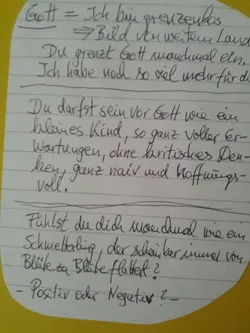 Gott = Ich bin grenzenlos
⇒ Bild von weitem Land
Du grenzt Gott manchmal ein.
Ich habe noch so viel mehr für di
Du darfst sein vor Gott wie ein
kleines Kind, so ganz voller Er-
wartungen, ohne kritisches Den-
ken, ganz naiv und hoffnungs-
voll.
Fühlst du dich manchmal wie ein
Schmetterling, der scheinbar immer von
Blüte zu Blüte flattert?
- Positiv oder Negativ? -